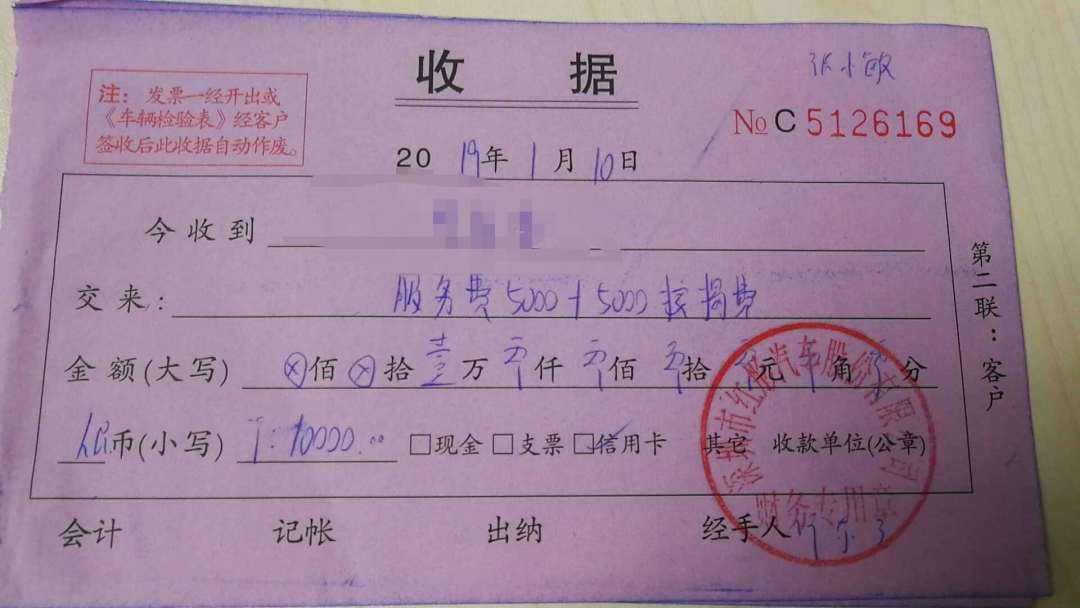 收 据
张小敏
注：发票一经开出或
《车辆检验表》经客户
签收后此收据自动作废。
No C 5126169
2019年1月10日
今收到
交来：服务费5000+5000按揭费
金额(大写) ⊗佰⊗拾壹万零仟零佰零拾零元零角零分
人民币(小写) ￥:10000.00 □现金□支票□信用卡 其它 收款单位(公章)
第二联：客户
深圳市红 汽车股份有限公司
财务专用章
会计 记帐 出纳 经手人